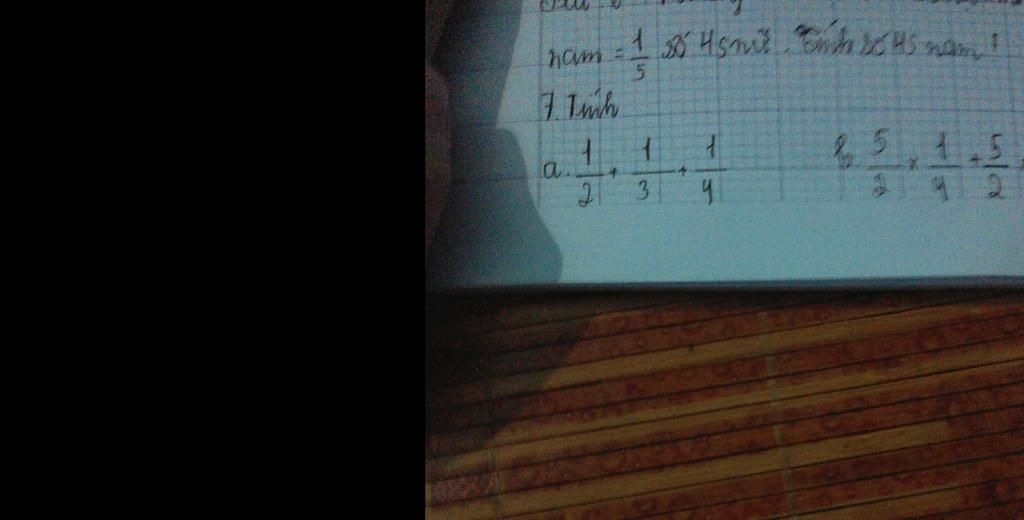 nam = 1/5 số HS nữ. Tính số HS nam?
7. Tính
a. 1/2 + 1/3 + 1/4 b. 5/2 × 1/4 + 5/2